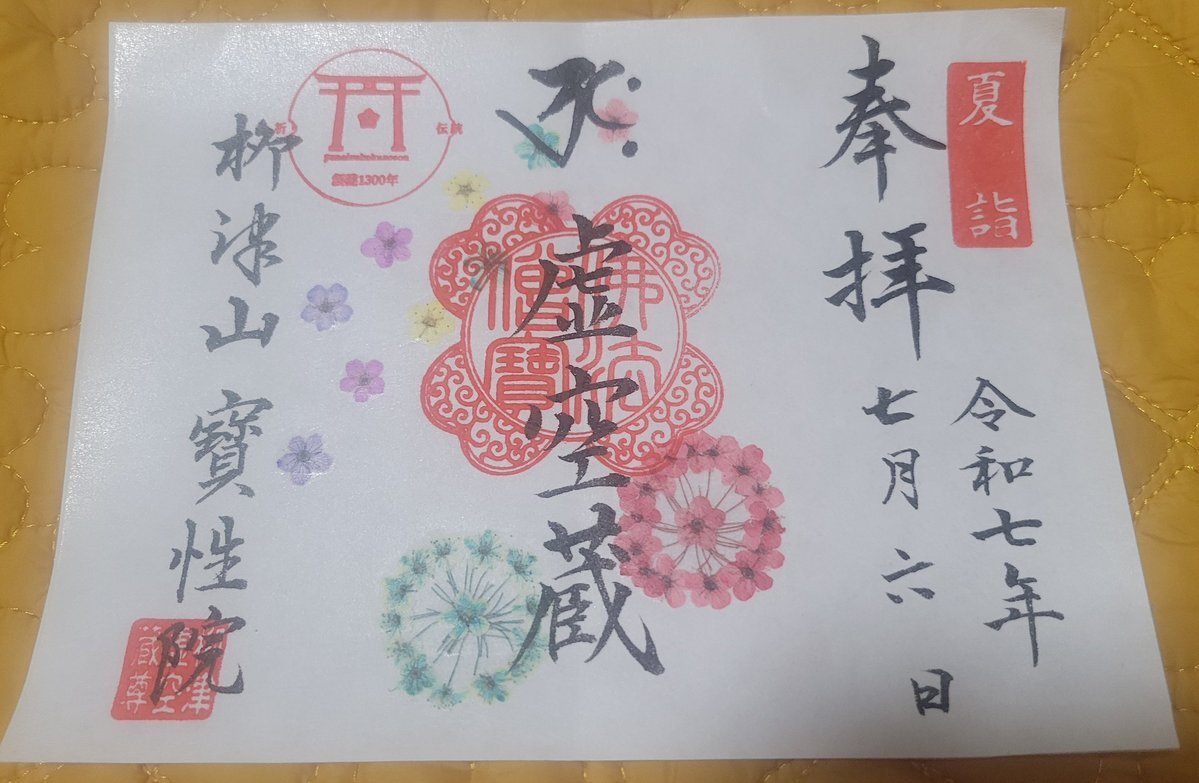 夏詣
奉拝
令和七年
七月六日
虚空蔵
佛法僧寶
祈り
伝統
創建1300年
柳津山 寳性院